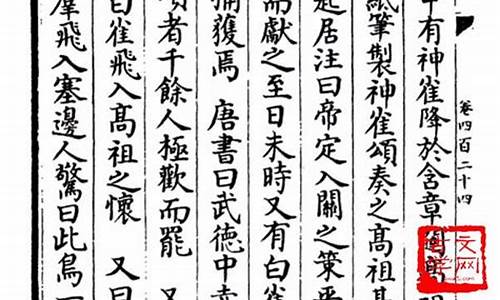 卷四百二十四
中有神雀降於含章
紙筆製神雀頌奏之高祖甚
起居注曰帝定入關之策
而獻之至日未時又有白雀
捕獲焉　唐書曰武德中
者千餘人極歡而罷　又
白雀飛入高祖之懷　又曰
羣飛入塞邊人驚曰此鳥一
文网